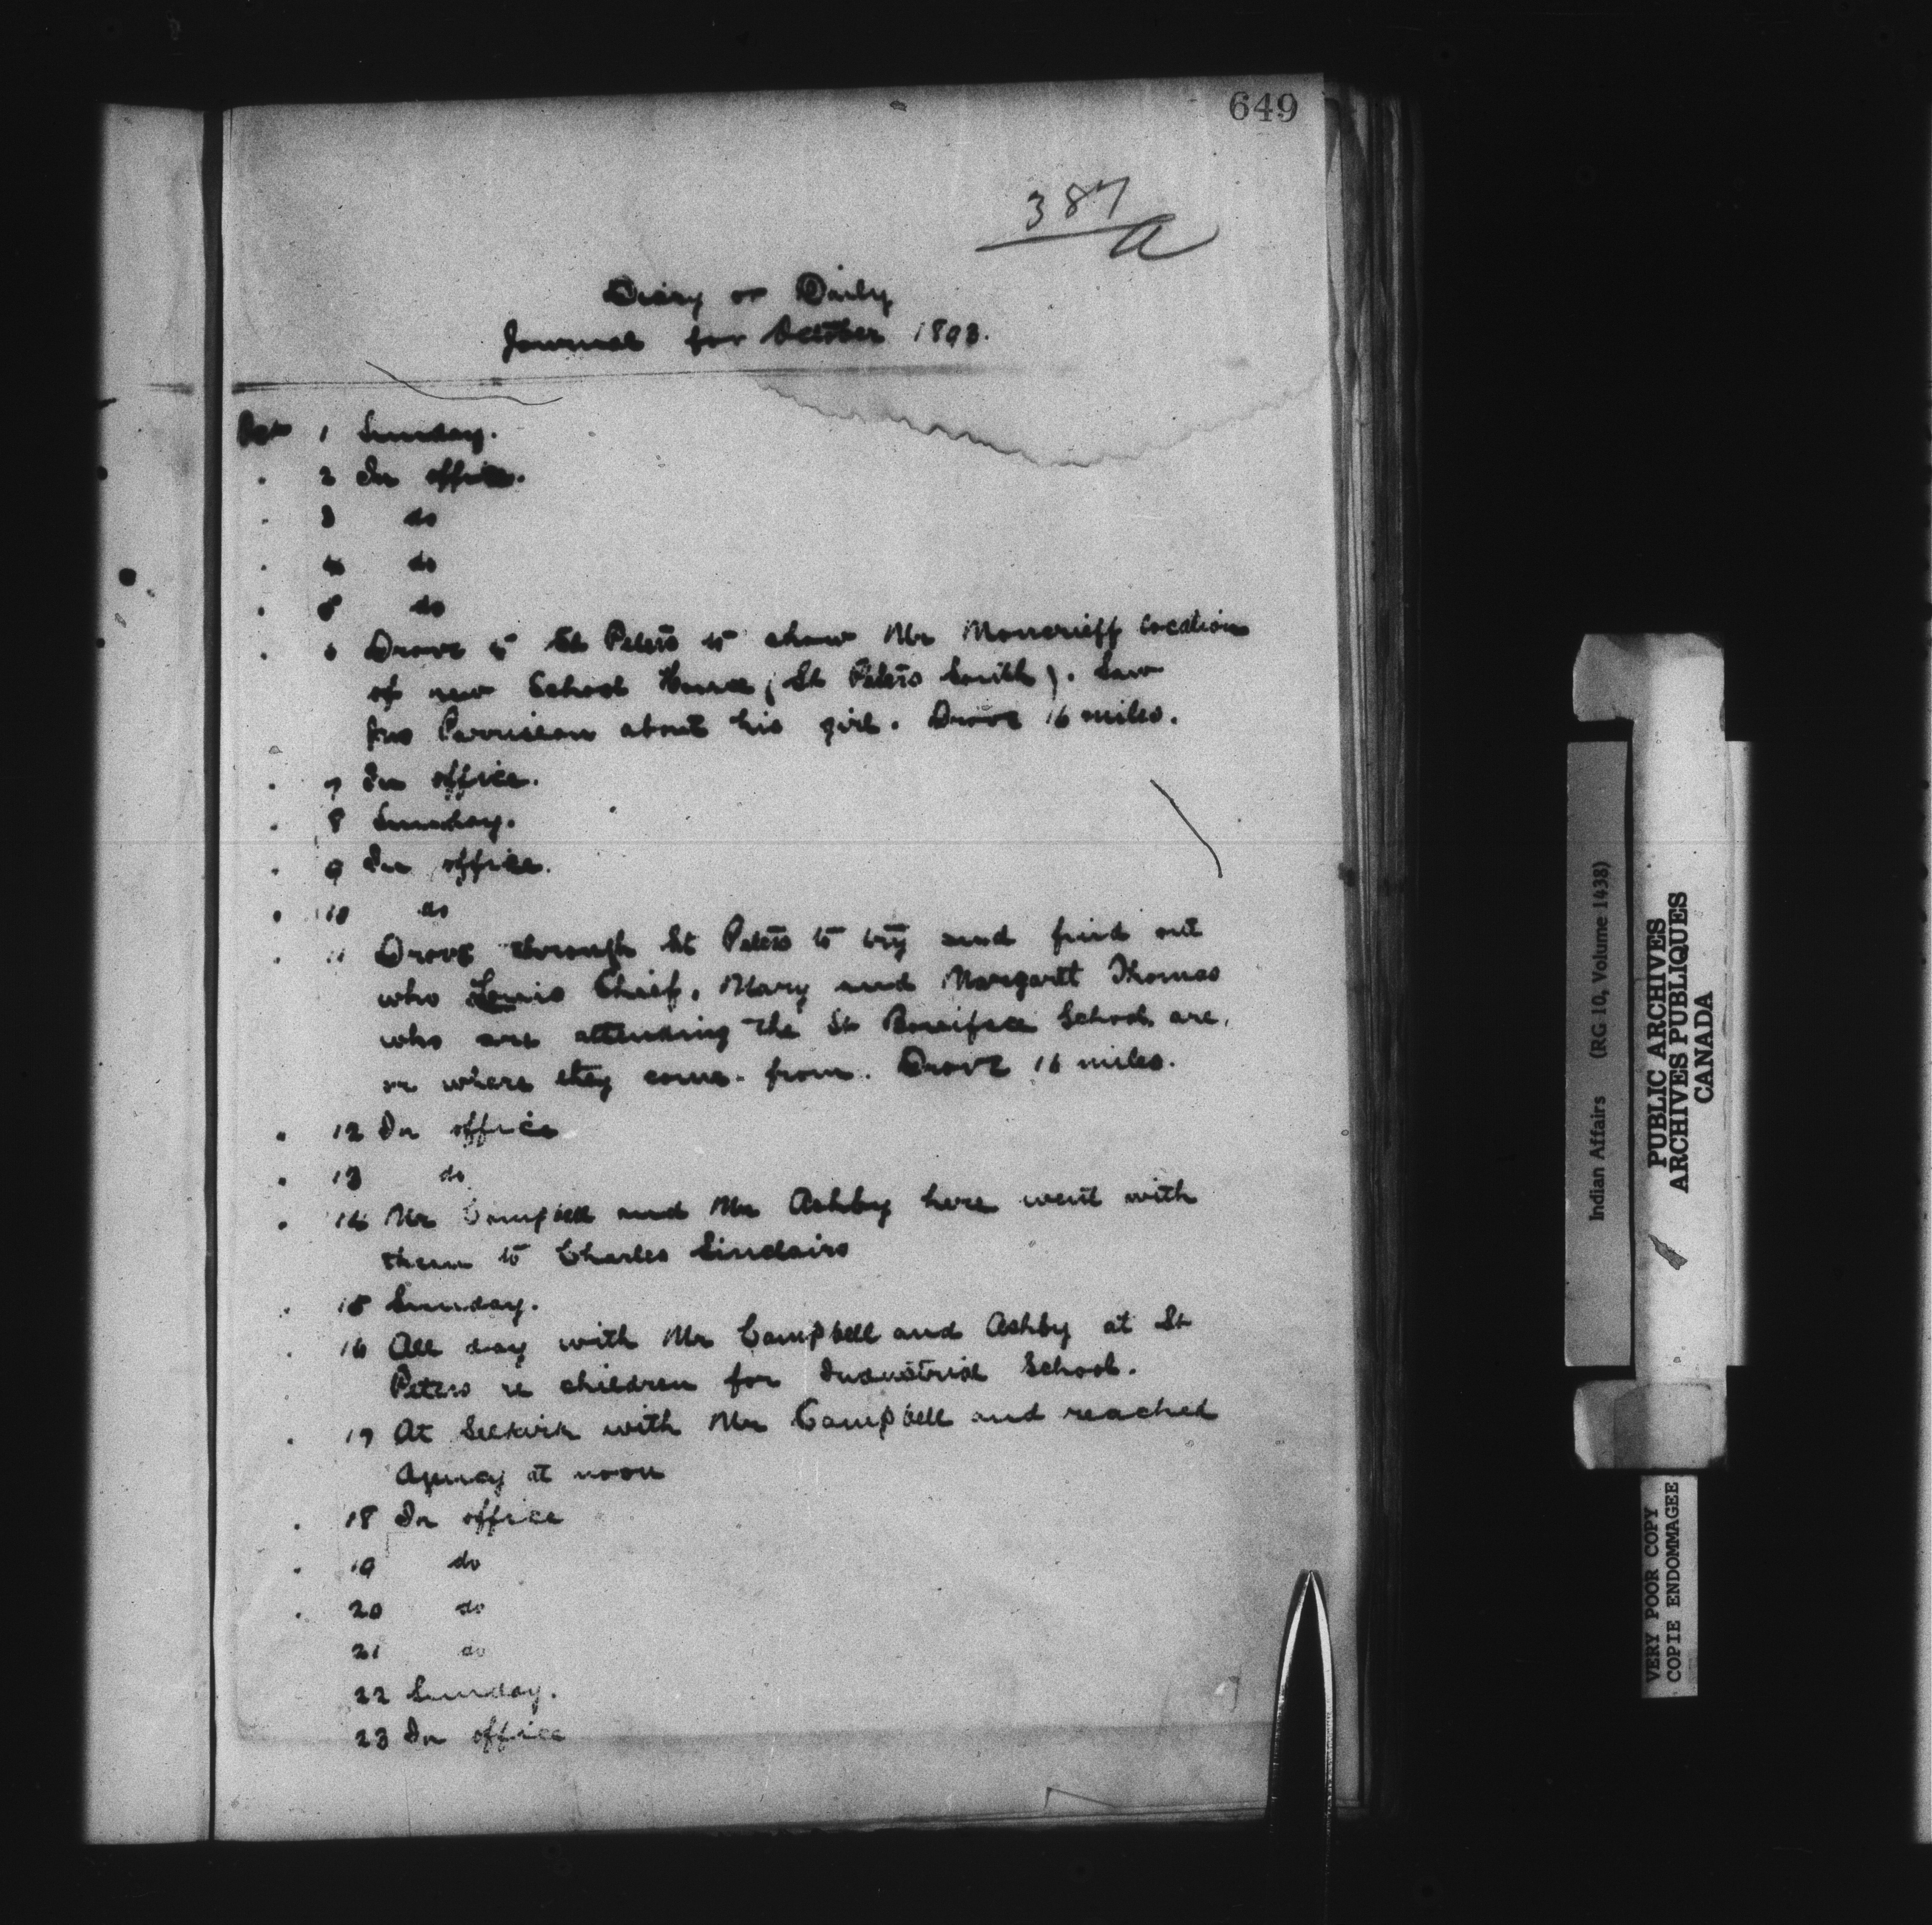 649
387
A
Diary or Daily
Journal for October 1893.
Oct 1 Sunday.
" 2 In office.
" 3 do
" 4 do
" 5 do
" 6 Drove to St Peters to show Mr Moncrieff location
of new School House (St Peters South). Saw
about his girl. Drove 16 miles.
" 7 In office.
" 8 Sunday.
" 9 In office.
" 10 do
" 11 Drove through St Peters to try and find out
who Louis Chief, Mary and Margarett Thomas
who are attending the St Boniface School are,
or where they come from. Drove 16 miles.
" 12 In office
" 13 do
" 14 Mr Campbell and Mr Ashby here went with
them to Charles Sinclairs
" 15 Sunday.
" 16 All day with Mr Campbell and Ashby at St
Peters re children for Industrial School.
" 17 At Selkirk with Mr Campbell and reached
Agency at noon
" 18 In office
" 19 do
" 20 do
21 do
22 Sunday.
23 In office
Indian Affairs (RG 10, Volume 1438)
PUBLIC ARCHIVES
ARCHIVES PUBLIQUES
CANADA
VERY POOR COPY
COPIE ENDOMMAGEE